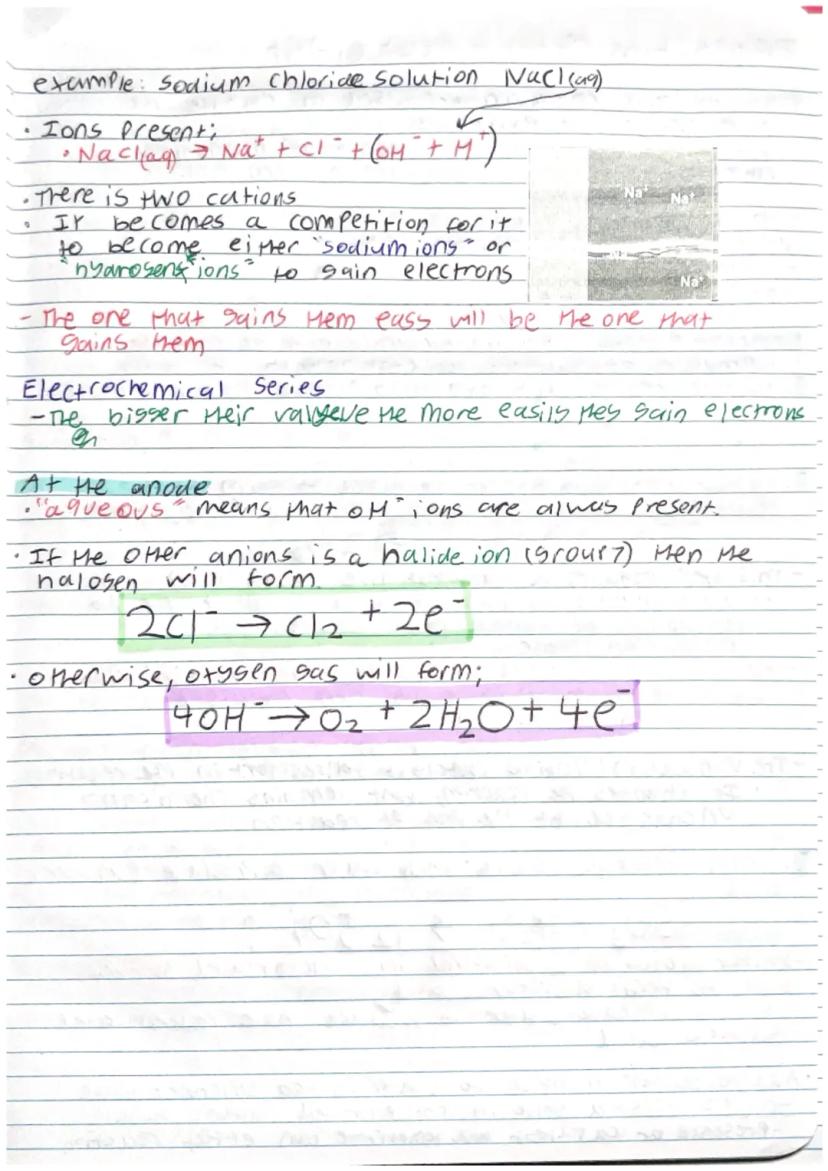 example: sodium chloride solution NaCl(aq)
· Ions present;
• NaCl(aq) → Na⁺ + Cl⁻ + (OH⁻ + H⁺)
• There is two cations
• It becomes a competition for it
to become either "sodium ions" or
"hydrogens ions" to gain electrons
Na⁺ Na⁺
Na⁺
- The one that gains them easy will be the one that
gains them
Electrochemical Series
- The bigger their the more easily they gain electrons
At the anode
• "aqueous" means that OH⁻ ions are alwas present.
· If the other anions is a halide ion (group 7) then the
halogen will form.
2Cl⁻ → Cl₂ + 2e⁻
· otherwise, oxygen gas will form;
4OH⁻ → O₂ + 2H₂O + 4e⁻